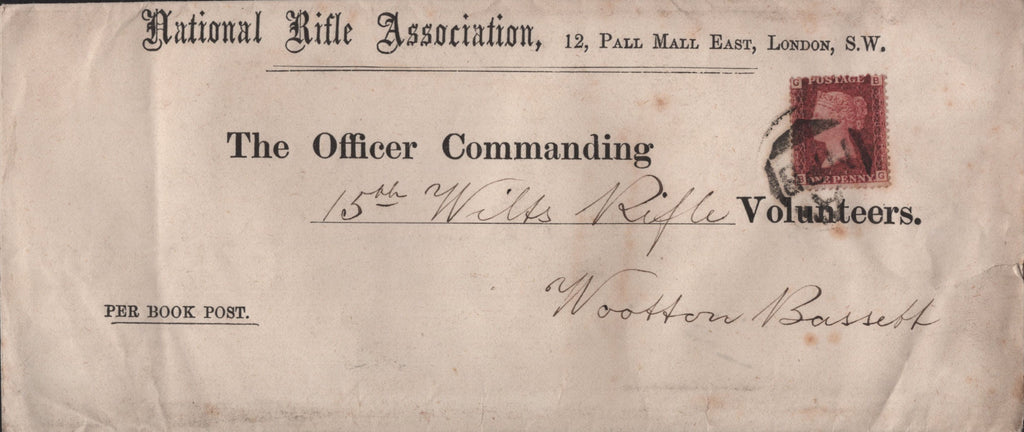 National Rifle Association, 12, PALL MALL EAST, LONDON, S.W.
G POSTAGE B
ONE PENNY G
The Officer Commanding
15th Wilts Rifle Volunteers.
Wootton Bassett
PER BOOK POST.